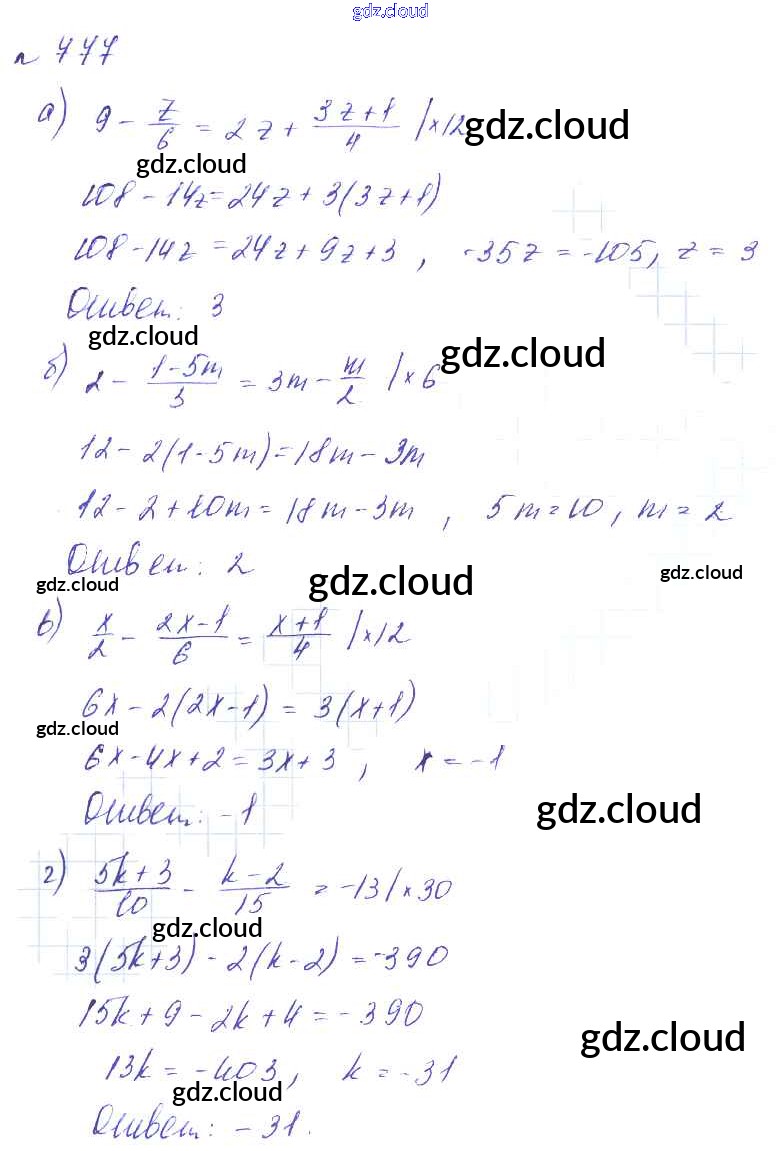 gdz.cloud
n 777
а) 9 - z/6 = 2z + (3z+1)/4 | ×12 gdz.cloud
gdz.cloud
108 - 14z = 24z + 3(3z+1)
108 - 14z = 24z + 9z + 3 , -35z = -105, z = 3
Ответ: 3
gdz.cloud
gdz.cloud
б) 2 - (1-5m)/3 = 3m - m/2 | ×6
12 - 2(1-5m) = 18m - 3m
12 - 2 + 10m = 18m - 3m , 5m = 10 , m = 2
Ответ: 2
gdz.cloud gdz.cloud gdz.cloud
в) x/2 - (2x-1)/6 = (x+1)/4 | ×12
6x - 2(2x-1) = 3(x+1)
gdz.cloud
6x - 4x + 2 = 3x + 3 , x = -1
Ответ: -1 gdz.cloud
г) (5k+3)/10 - (k-2)/15 = -13 | ×30
gdz.cloud
3(5k+3) - 2(k-2) = -390
15k + 9 - 2k + 4 = -390
gdz.cloud
13k = -403, k = -31
gdz.cloud
Ответ: -31.